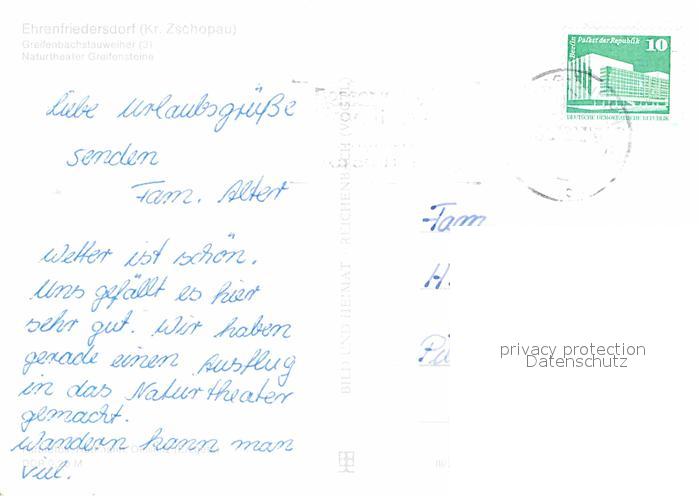 Ehrenfriedersdorf (Kr. Zschopau)
Greifenbachstauweiher (3)
Naturtheater Greifensteine
Berlin, Palast der Republik
10
DEUTSCHE DEMOKRATISCHE REPUBLIK
Liebe Urlaubsgrüße
senden
Fam. Alter
Wetter ist schön.
Uns gefällt es hier
sehr gut. Wir haben
gerade einen Ausflug
in das Naturtheater
gemacht.
Wandern kann man
viel.
BILD UND HEIMAT REICHENBACH (VOGTL)
Fam
H.
privacy protection
Datenschutz